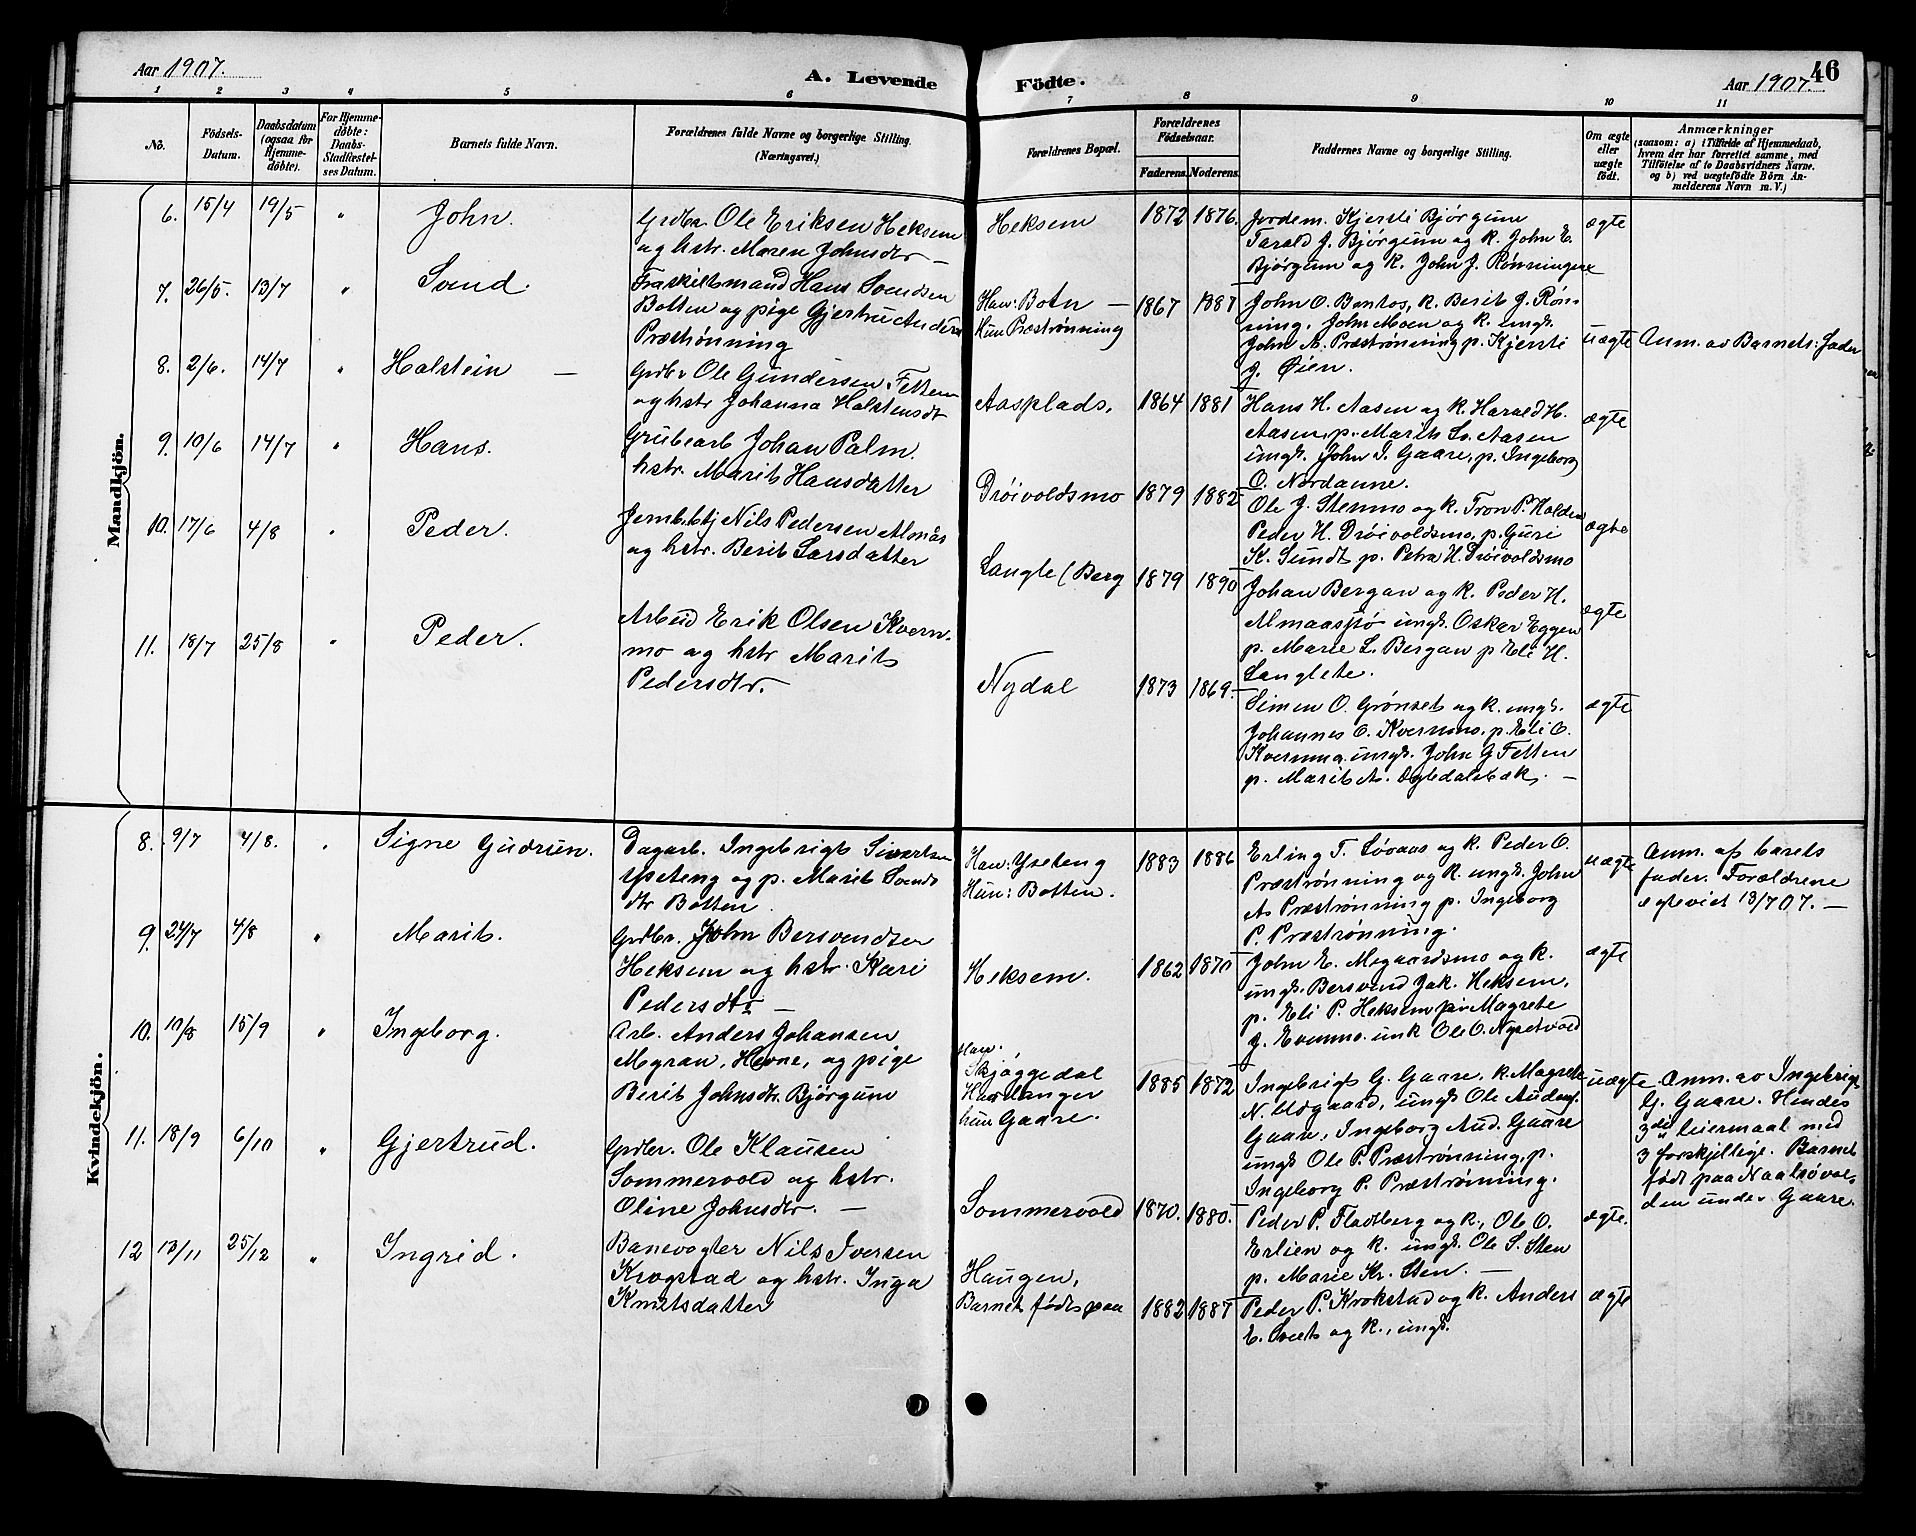 Aar 1907.
A. Levende
Födte.
Aar 1907.
46
1
2
3
4
5
6
7
8
9
10
11
No.
Födsels-Datum.
Daabsdatum (ogsaa for Hjemme-döbte).
For Hjemme-döbte: Daabs-Stadfæstel-ses Datum.
Barnets fulde Navn.
Forældrenes fulde Navne og borgerlige Stilling.
(Næringsvei.)
Forældrenes Bopæl.
Forældrenes Födselsaar.
Faderens.
Moderens.
Faddernes Navne og borgerlige Stilling.
Om ægte eller uægte födt.
Anmærkninger
(saasom: a) i Tilfælde af Hjemmedaab,
hvem der har forrettet samme, med
Tilföielse af to Daabsvidners Navne.
og b) ved uægtefödte Börn An-
melderens Navn m. V.)
Mandkjön.
6. 15/4 19/5 " John.
Grdbr. Ole Eriksen Heksem
og hstr. Maren Johnsdtr –
Heksem 1872 1876.
Jordem. Kjersti Bjørgum
Tarald J. Bjørgum og K. John E.
Bjørgum og K. John J. Rønningen
ægte
7. 26/5. 13/7 " Svend.
Fraskiltmand Hans Svendsen
Botten og pige Gjertru Anders
Præstrønning
Han: Botn –
Hun Præstrønning
1867 1887
John O. Bontos, K. Berit J. Røn-
ning, John Moen og K. ungk.
John A. Præstrønning p. Kjersti
J. Øien.
uægte
Anm. av Barnets Fader
8. 2/6. 14/7 " Halstein –
Grdbr Ole Gundersen Fetten
og hstr Johanna Halstensdt
Aasplads, 1864 1881
Hans H. Aasen og K. Harald H.
Aasen, p. Marith Sv. Aasen
ungk. John I. Gaare, p. Ingeborg
O. Nordaune.
ægte
9. 10/6 14/7 " Hans.
Grubearb Johan Palm.
hstr. Marit Hansdatter
Drøivoldsmo 1879 1882
Ole J. Stenmo og K. Tron P. Halden
Peder H. Drøivoldsmo, p. Guri
K. Sundt p. Petra H. Drøivoldsmo
ægte
10. 17/6 4/8 " Peder.
Jernb.btj Nils Pedersen Almås
og hstr. Berit Larsdatter
Langle / Berg 1879 1890
Johan Bergan og K. Peder H.
Almaassjø ungk. Oskar Eggen
p. Marie L. Bergan p Eli H.
Langlete.
ægte
11. 18/7 25/8 " Peder.
Arbeid Erik Olsen Kvern-
mo og hstr Marit
Pedersdtr.
Nydal 1873 1869.
Simen O. Grønset og K. ungk.
Johannes O. Kvernmo. p. Eli O.
Kvernmo ungk. John G Fetten
p. Marit A.
ægte
Kvindekjön.
8. 9/7 4/8. " Signe Gudrun.
Dagarb. Ingebrigt Sivertsen
Yseteng og p. Marit Svends
dtr Botten
Han: Yseteng
Hun: Botten.
1883 1886
Erling T. Løvaas og K. Peder O.
Præstrønning og K. ungk. John
A. Præstrønning p. Ingeborg
P. Præstrønning.
uægte
Anm. af barets
fader. Forældrene
egteviet 13/7 07. –
9. 24/7 4/8 " Marit.
Grdbr. John Bersvendsen
Heksem og hstr. Kari
Pedersdtr –
Heksem. 1862 1870
John E. Megaardsmo og K.
ungk. Bersvend Jak. Heksem,
p. Eli P. Heksem Magrete
J. Evenmo. unk Ole O. Nysetvold
ægte
10. 10/8 15/9 " Ingeborg.
Arb. Anders Johansen
Myran, Hevne, og pige
Berit Johnsdtr. Bjørgum
Han.
Skjøggedal
Hardanger
hun Gaare.
1885 1872
Ingebrigt G. Gaare, K. Magrete
N. Ødegaard, ungk Ole Anders.
Gaare, Ingeborg And. Gaare
ungk Ole P. Præstrønning, p.
Ingeborg P. Præstrønning.
uægte
Anm. av Ingebrigt
G. Gaare. Hendes
3de leiermaal med
3 forskjellige. Barnet
født paa
den under Gaare.
11. 18/9 6/10 " Gjertrud.
Grdbr. Ole Klausen
Sommervold og hstr.
Oline Johnsdtr. –
Sommervold 1870. 1880.
Peder P. Fladberg og K, Ole O.
Erlien og K. ungk. Ole S. Sten
p. Marie Kr. Sten. –
ægte.
12 13/11 25/12 " Ingrid.
Banevogter Nils Iversen
Krogstad og hstr. Inga
Knutsdatter
Haugen,
Barnet født paa
1882 1887
Peder P. Krokstad og K. Anders
E. Sveet og K., ungk.
ægte